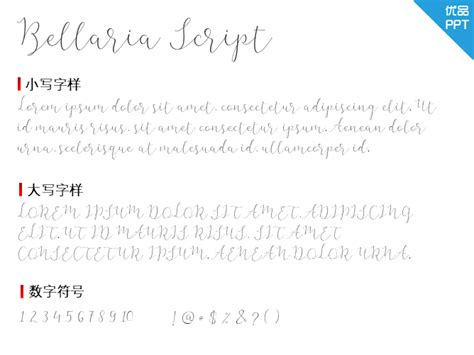 优品
PPT
Bellaria Script
小写字样
Lorem ipsum dolor sit amet, consectetur adipiscing elit. Ut
id mauris risus, sit amet consectetur ipsum. Aenean dolor
urna, scelerisque at malesuada id, ullamcorper id.
大写字样
LOREM IPSUM DOLOR SIT AMET, ADIPISCING
ELIT. UT ID MAURIS RISUS, SIT AMET
CONSECTETUR IPSUM. AENEAN DOLOR URNA.
数字符号
1 2 3 4 5 6 7 8 9 10 !@*$%&?()